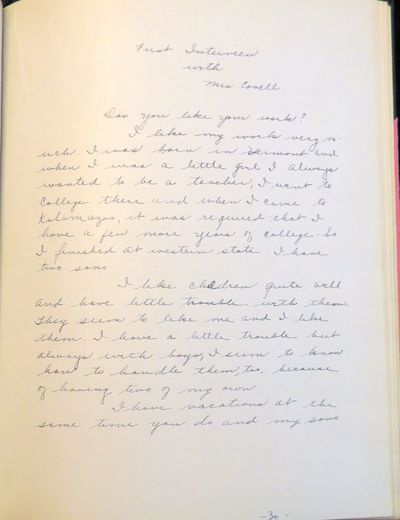 First Interview
with
Mrs Covell.
Do you like your work?
I like my work very m-
uch. I was born in Vermont and
when I was a little girl I always
wanted to be a teacher, I went to
College there and when I came to
Kalamazoo, it was required that I
have a few more years of college. So
I finished at western state. I have
two sons
I like children quite well
and have little trouble with them.
They seem to like me and I like
them. I have a little trouble but
always with boys, I seem to know
how to handle them, too, because
of having two of my own
I have vacations at the
same time you do and my sons
-30-